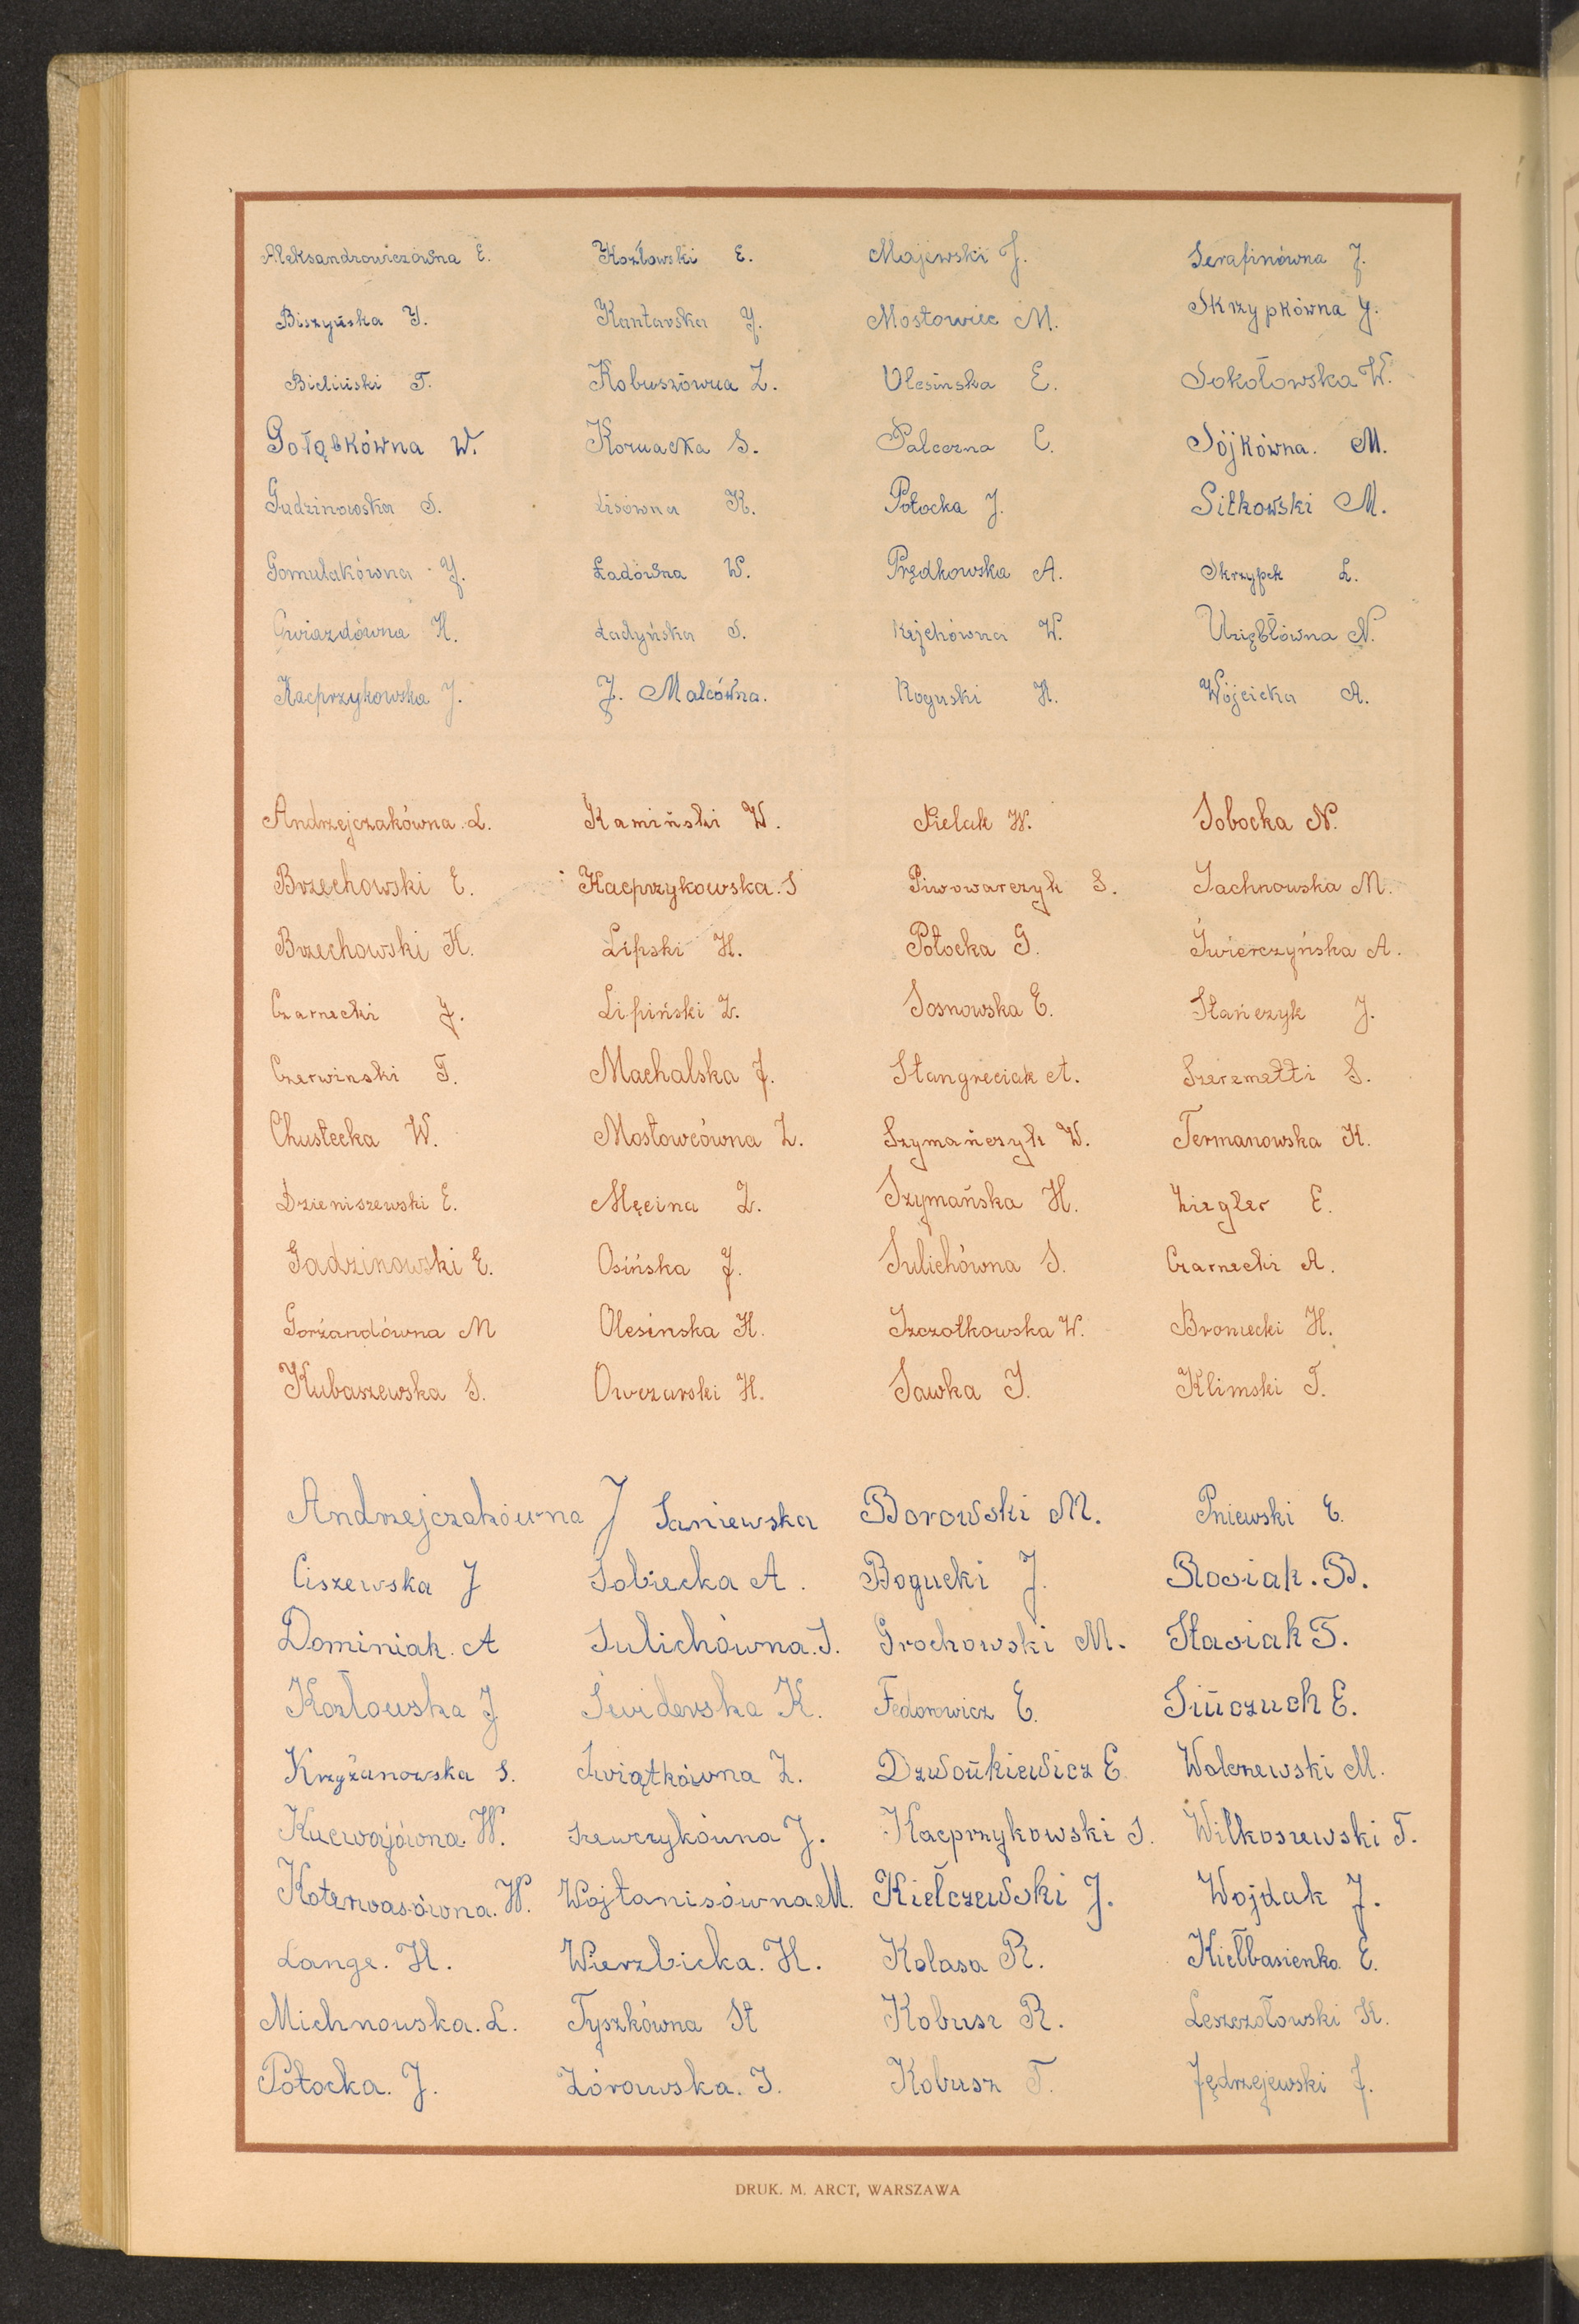 Aleksandrowiczówna E. Kozłowski E. Majewski J. Serafinówna J.
Biszyńska J. Kantarska J. Mostowiec M. Skrzypkówna J.
Bieliński T. Kobuszówna Z. Olesinska E. Sokołowska W.
Gołąbkówna W. Kornacka S. Palcezna C. Sójkówna. M.
Gudzinowska S. Lisówna K. Potocka J. Sitkowski M.
Gomulakówna J. Ładówna W. Prędkowska A. Skrzypek L.
Gwiazdówna H. Ładyńska S. Rejchówna W. Uziębłówna N.
Kacprzykowska J. J. Malcówna. Roguski H. Wójcicka A.
Andrzejczakówna. L. Kamiński W. Pielak W. Sobocka N.
Brzechowski E. Kacprzykowska. S Piwowarczyk S. Sachnowska M.
Brzechowski K. Lipski H. Potocka G. Świerczyńska A.
Czarnecki J. Lipiński Z. Sosnowska E. Stańczyk J.
Czerwinski T. Machalska J. Stangreciak A. Szerzmetti S.
Chustecka W. Mostowcówna Z. Szymańczyk W. Termanowska K.
Dzieniszewski E. Męcina Z. Szymańska H. Ziegler E.
Gadzinowski E. Osińska J. Sulichówna S. Czarnecki A.
Gorżandówna M Olesinska H. Szczotkowska W. Broniecki H.
Kubaszewska S. Owczarski H. Sawka J. Klimski T.
Andrzejczakówna J Saniewska Borowski M. Pniewski E.
Ciszewska J Sobiecka A. Bogucki J. Rosiak. B.
Dominiak. A Sulichówna. S. Grochowski M. Stasiak T.
Kozłowska J Świderska K. Fedorowicz E. Sińczuch E.
Krzyżanowska S. Świątkówna Z. Dzwońkiewicz E. Wolczewski M.
Kucwajówna. W. Szewczykówna J. Kacprzykowski S. Wilkoszewski T.
Koterwasówna. W. Wojtanisówna. M. Kiełczewski J. Wojdak J.
Lange. H. Wierzbicka. H. Kolasa R. Kiełbasienko. E.
Michnowska. L. Tyszkówna St Kobusz R. Leszczołowski K.
Potocka. J. Żórowska. J. Kobusz T. Jędrzejewski J.
DRUK. M. ARCT, WARSZAWA